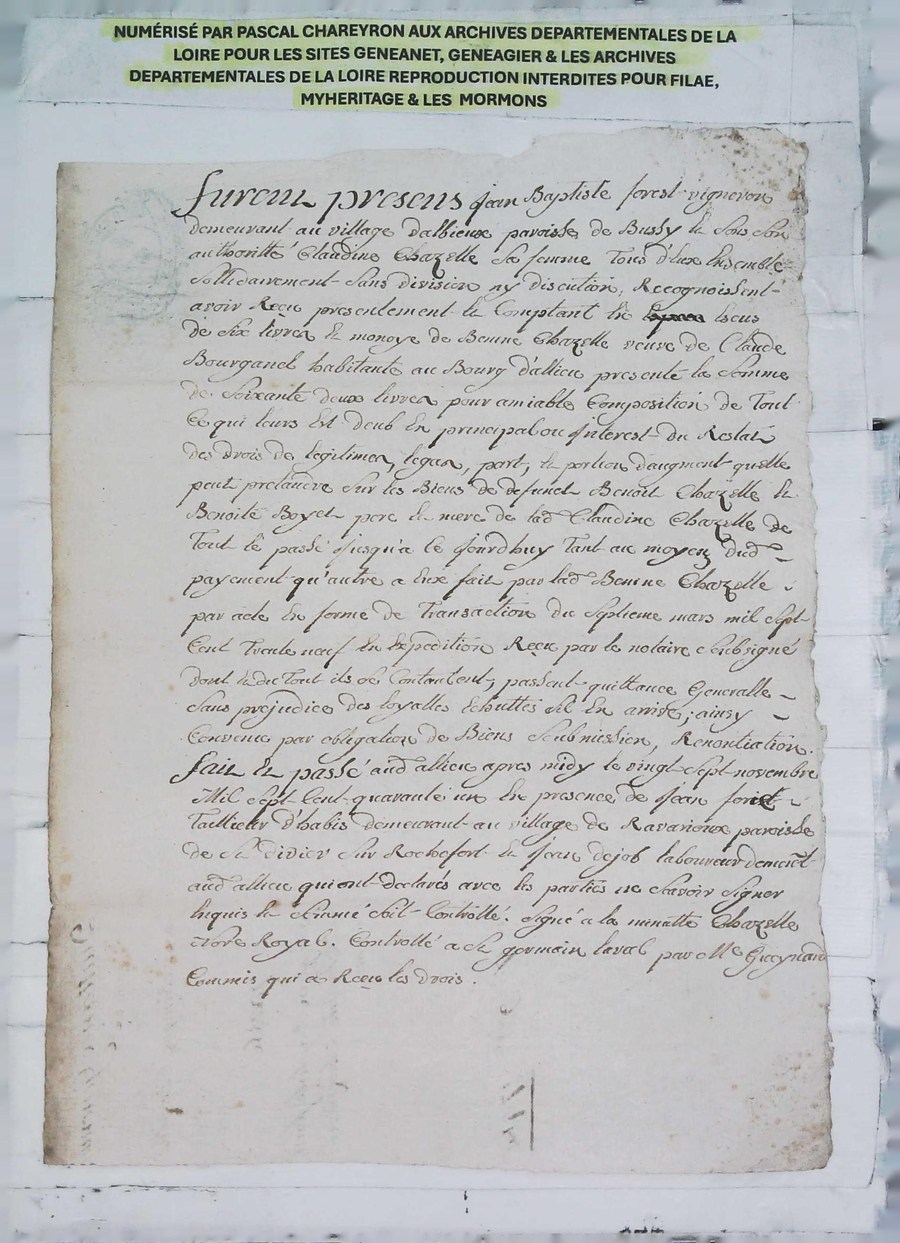 NUMÉRISÉ PAR PASCAL CHAREYRON AUX ARCHIVES DEPARTEMENTALES DE LA
LOIRE POUR LES SITES GENEANET, GENEAGIER & LES ARCHIVES
DEPARTEMENTALES DE LA LOIRE REPRODUCTION INTERDITES POUR FILAE,
MYHERITAGE & LES MORMONS
furent presens Jean Baptiste forest vigneron
demeurant au village dalbieux paroisse de Bussy et sous son
authoritté Claudine Chazelle sa femme tous d'eux Ensemble
sollidairement sans division ny discution, Recognoissent
avoir Receu presentement et Comptant En Escus
de six livres et monoye de Benoite Chazelle veuve de Claude
Bourganel habitante au Bourg d'allieu presente la somme
de soixante deux livres pour amiable Composition de tout
Ce qui leurs Est deub En principal ou Interest du Restat
des drois de legitimes, legas, part, et portion daugment quelle
peut pretandre sur les Biens de defunct Benoit Chazelle et
Benoite Boyet pere et mere de lad Claudine Chazelle de
tout le passé Jusqu'a ce Jourdhuy tant au moyen dud
payement qu'autre a Eux fait par lad Chazelle
par acte En forme de transaction du septieme mars mil sept
Cent trente neuf En Expedition Receu par le notaire soubsigné
dont et du tout ils se Contantent, passent quittance Generalle
sans prejudice des loyalles Echuttes sil En arrive; ainsy
Convenu par obligation de Biens soubmission, Renontiation.
fait Et passé aud allieu apres midy le vingt sept novembre
Mil sept Cent quarante un En presence de Jean forest
taillieur d'habis demeurant au village de Ravarioux paroisse
de St didier sur Rochefort et Jean dejob laboureur demeurt
aud allieu qui ont declarés avec les parties ne savoir signer
Enquis et sommé soit Controllé. signé a la minutte Chazelle
Nore Royal. Controllé a St germain laval par Me Gueynard
Commis qui a Receu les drois.